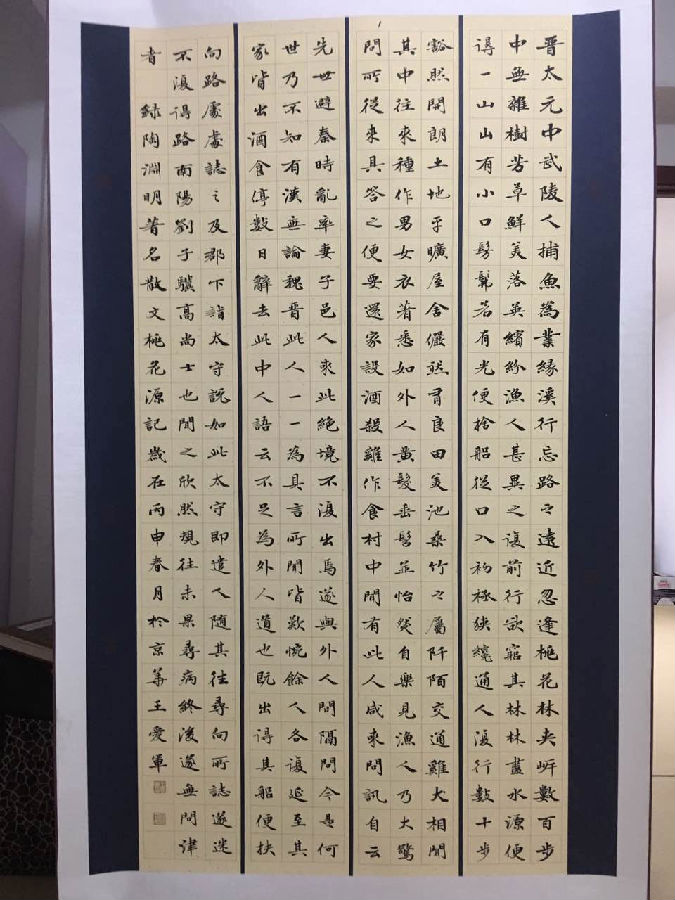 晋太元中武陵人捕魚為業緣溪行忘路之遠近忽逢桃花林夾岸數百步
中無雜樹芳草鮮美落英繽紛漁人甚異之復前行欲窮其林林盡水源便
得一山山有小口髣髴若有光便捨船從口入初極狹纔通人復行數十步
豁然開朗土地平曠屋舍儼然有良田美池桑竹之屬阡陌交通雞犬相聞
其中往來種作男女衣著悉如外人黃髮垂髫並怡然自樂見漁人乃大驚
問所從來具答之便要還家設酒殺雞作食村中聞有此人咸來問訊自云
先世避秦時亂率妻子邑人來此絕境不復出焉遂與外人間隔問今是何
世乃不知有漢無論魏晉此人一一為具言所聞皆歎惋餘人各復延至其
家皆出酒食停數日辭去此中人語云不足為外人道也既出得其船便扶
向路處處誌之及郡下詣太守說如此太守即遣人隨其往尋向所誌遂迷
不復得路南陽劉子驥高尚士也聞之欣然規往未果尋病終後遂無問津
者 錄陶淵明著名散文桃花源記歲在丙申春月於京華王愛軍